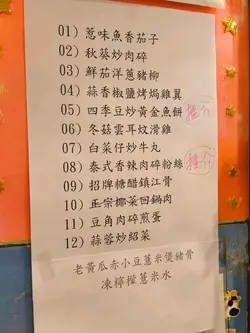 01) 惹味魚香茄子
02) 秋葵炒肉碎
03) 鮮茄洋蔥豬柳
04) 蒜香椒鹽烤焗雞翼
05) 四季豆炒黃金魚餅 推介
06) 冬菇雲耳蚊滑雞
07) 白菜仔炒牛丸
08) 泰式香辣肉碎粉絲 推介
09) 招牌糖醋鎮江骨
10) 正宗椰菜回鍋肉
11) 豆角肉碎煎蛋
12) 蒜蓉炒紹菜
老黃瓜赤小豆薏米煲豬骨
凍檸檬薏米水